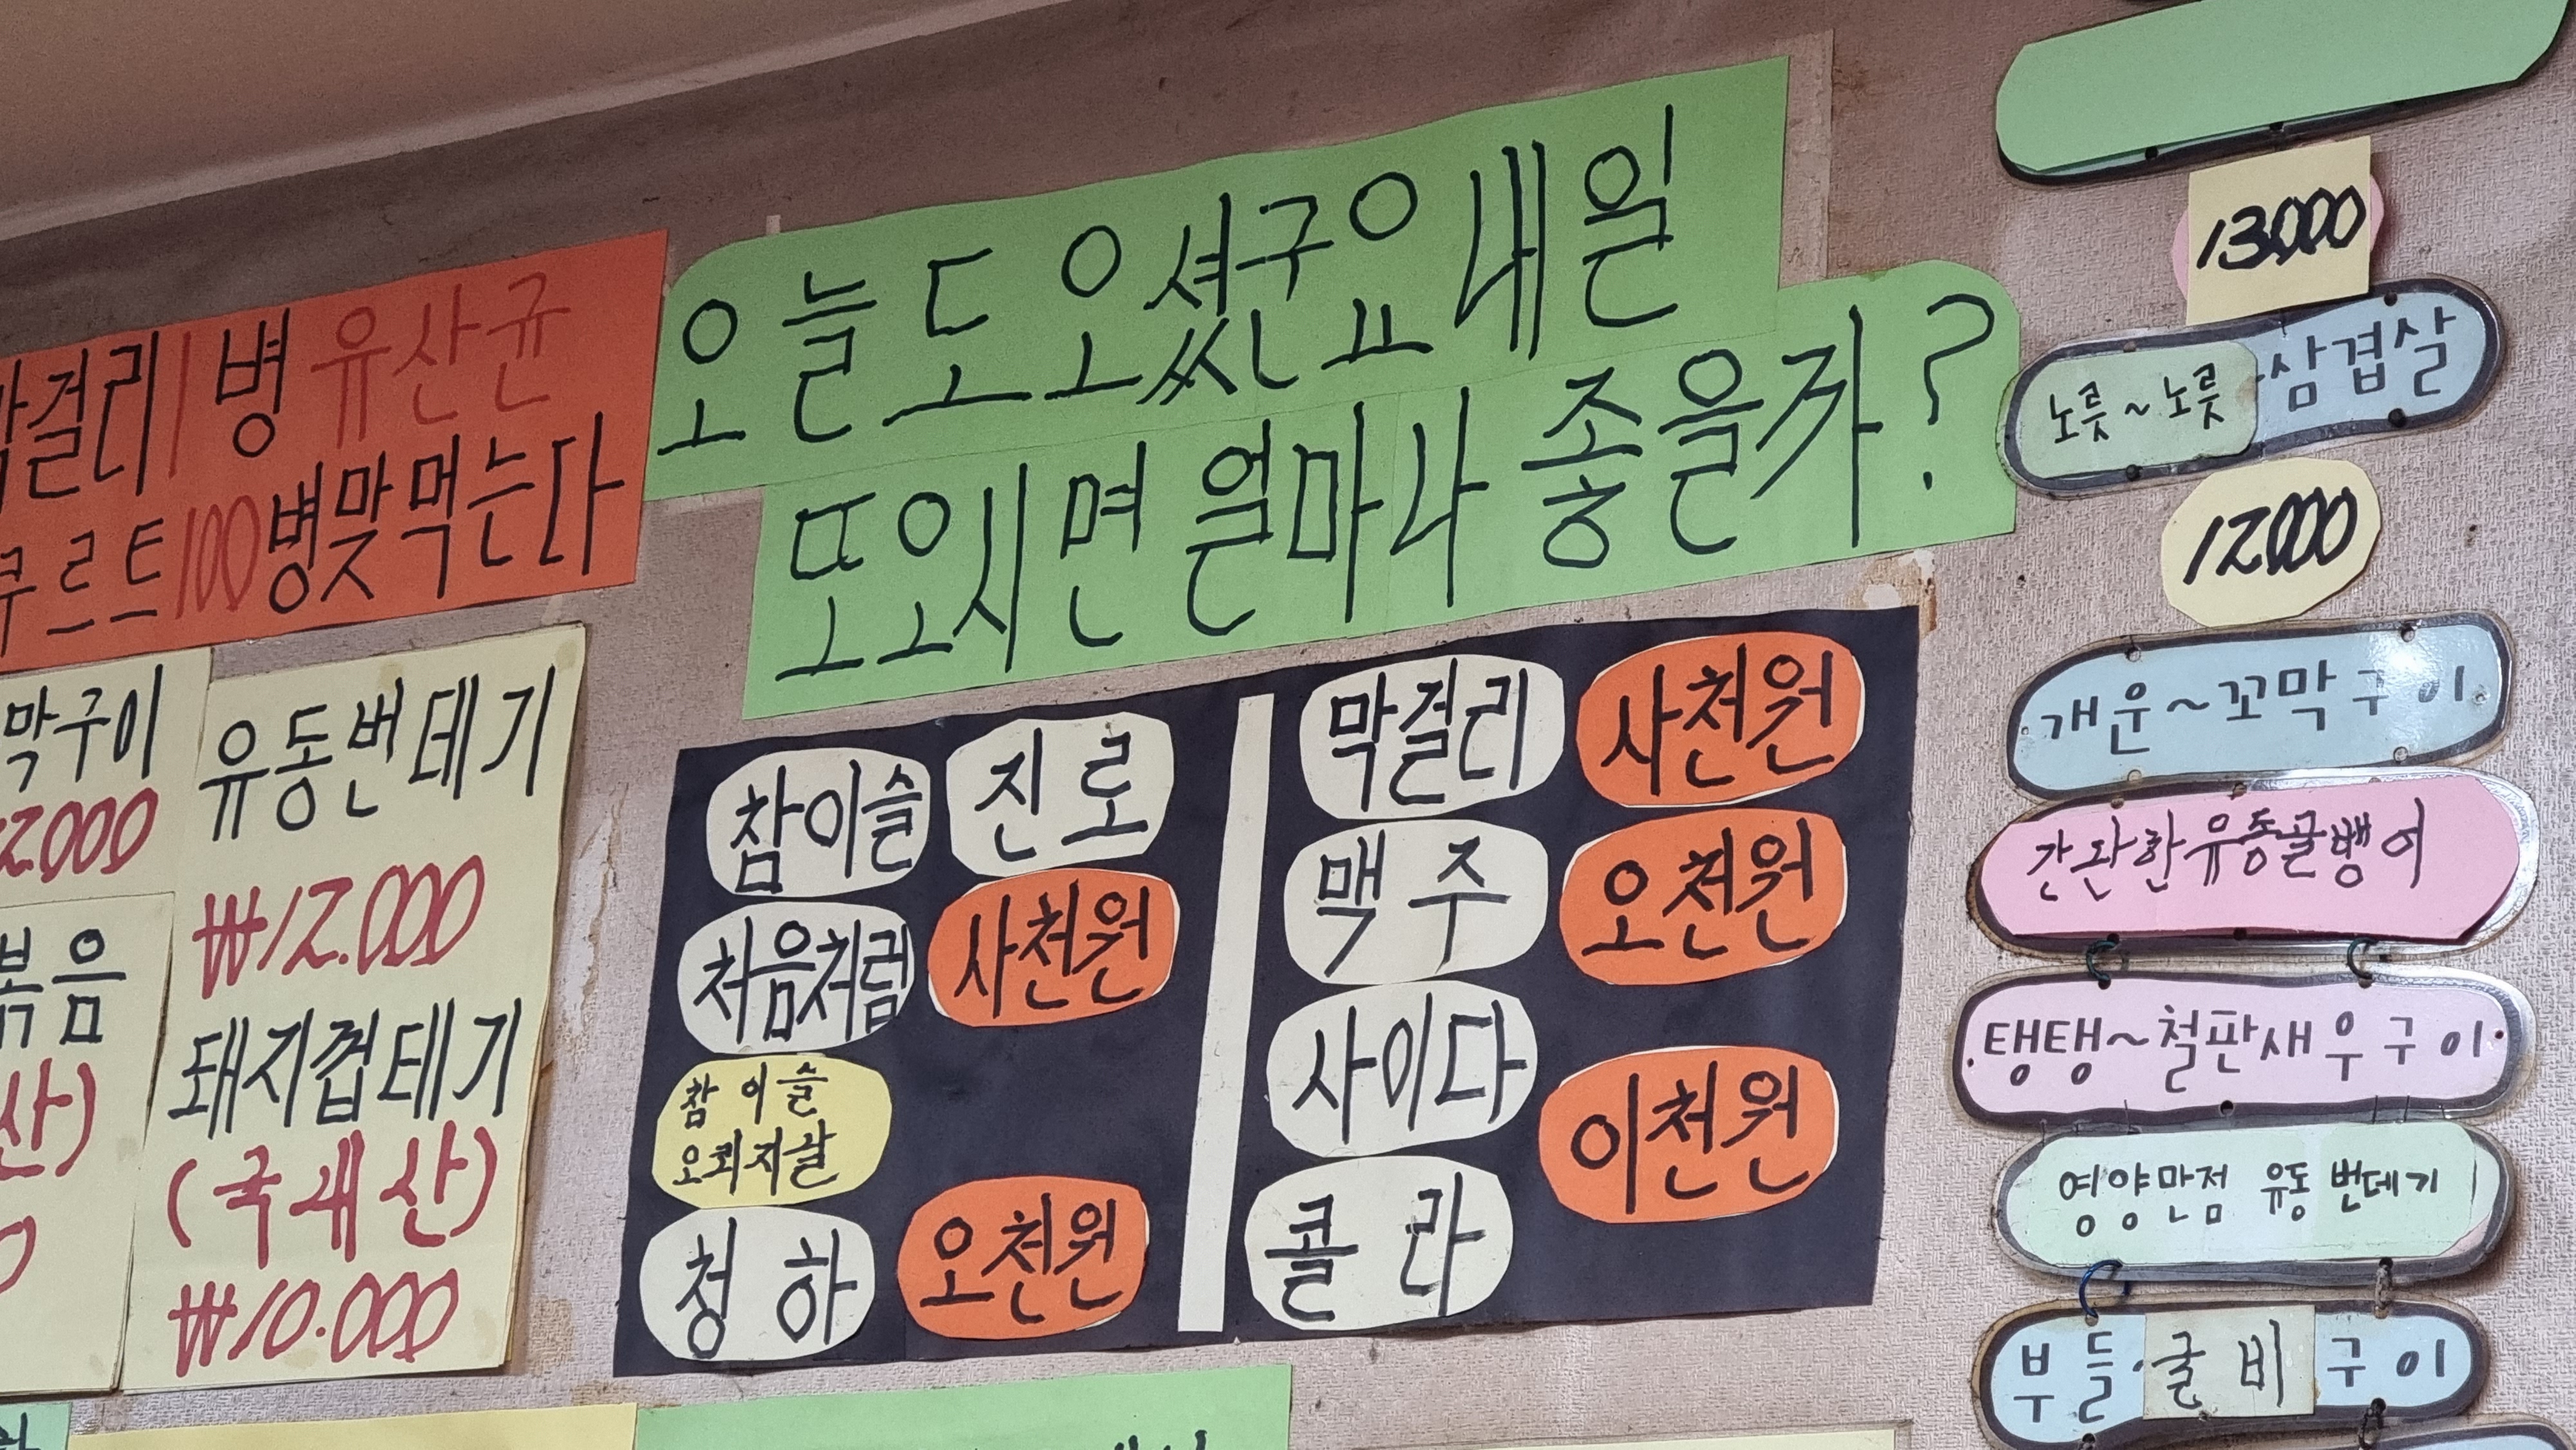 막걸리 1병 유산균
쿠르트 100병 맞먹는다
오늘도 오셨군요 내일
또 오시면 얼마나 좋을까?
막구이
2000
볶음
산)
유동번데기
₩12.000
돼지껍테기
(국내산)
₩10.000
참이슬 진로
처음처럼 사천원
참이슬
오뢰지날
청하 오천원
막걸리 사천원
맥주 오천원
사이다
이천원
콜라
13000
노릇~노릇 삼겹살
12000
개운~꼬막구이
간단한 유동골뱅이
탱탱~철판새우구이
영양만점 유동 번데기
부들 굴비구이